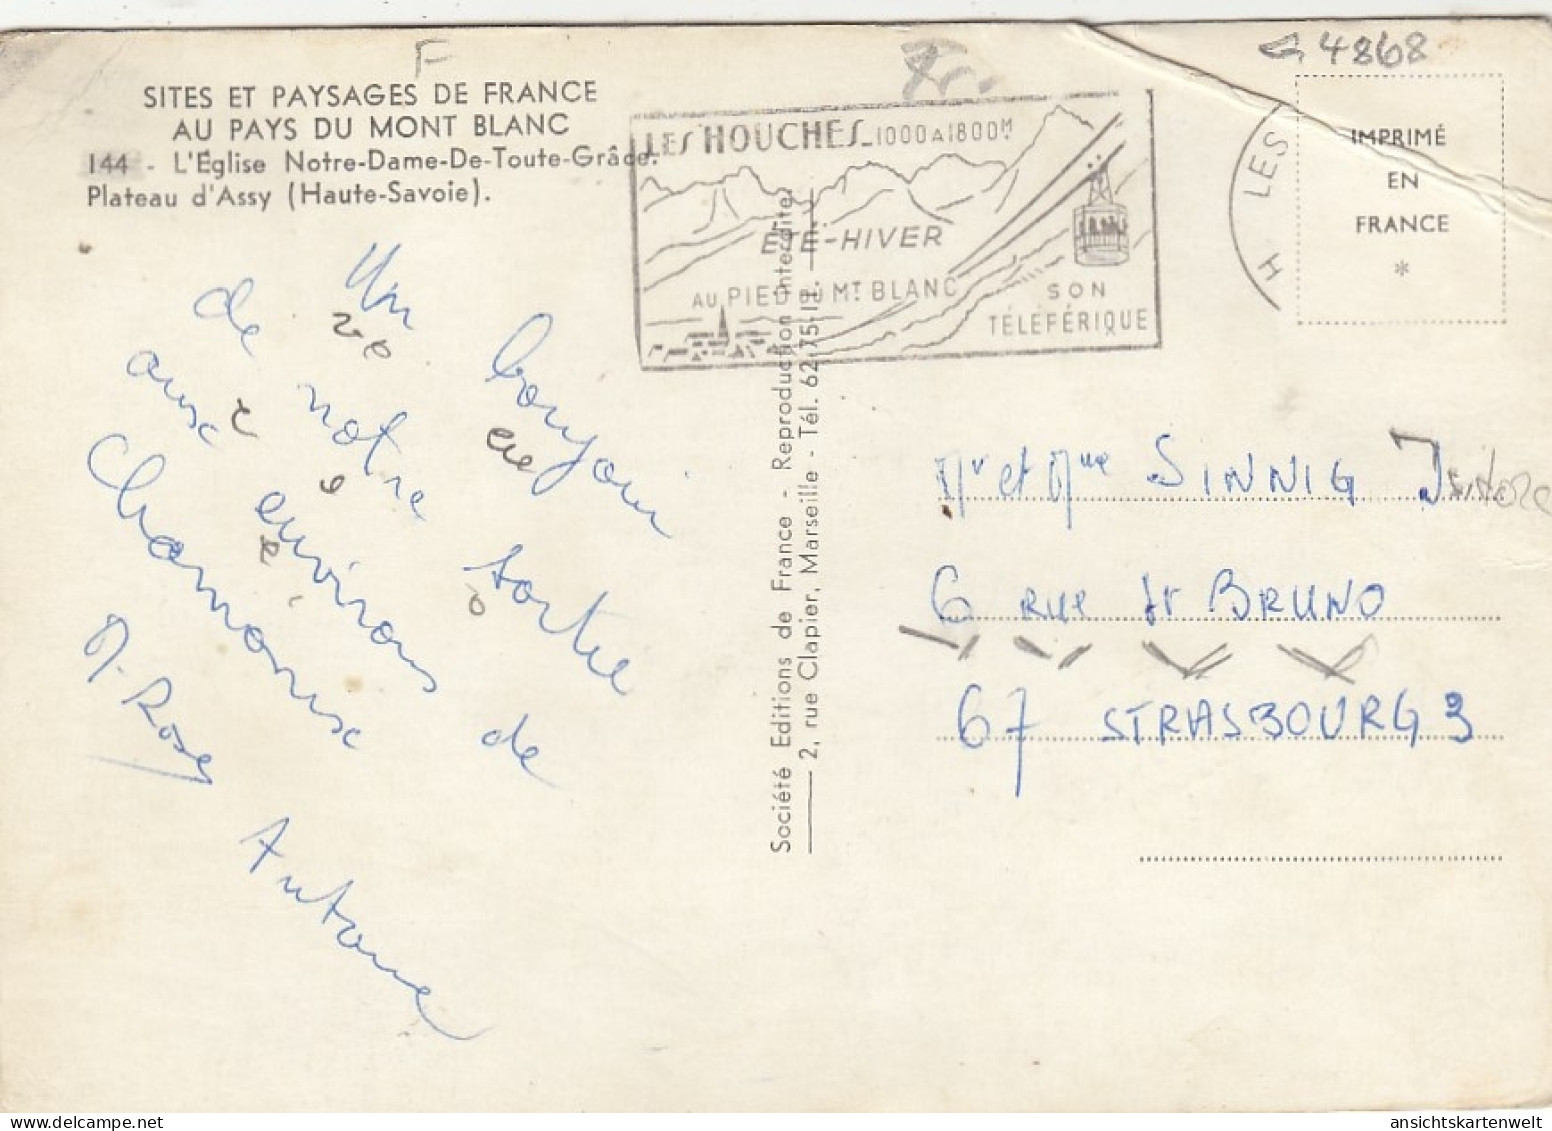 F
G 4868
SITES ET PAYSAGES DE FRANCE
AU PAYS DU MONT BLANC
144 - L'Église Notre-Dame-De-Toute-Grâce.
Plateau d'Assy (Haute-Savoie).
LES HOUCHES_1000 A 1800 M
ÉTÉ-HIVER
AU PIED DU MT BLANC
SON
TÉLÉFÉRIQUE
H LES
IMPRIMÉ
EN
FRANCE
*
Un bonjour
de notre sortie
aux environs de
Chamonix
M. Rose
Antoine
Société Editions de France - Reproduction interdite
2, rue Clapier, Marseille - Tél. 62-75-11.
Mr et Mme SINNIG Isidore
6 RUE St BRUNO
67 STRASBOURG 3
ansichtskartenwelt